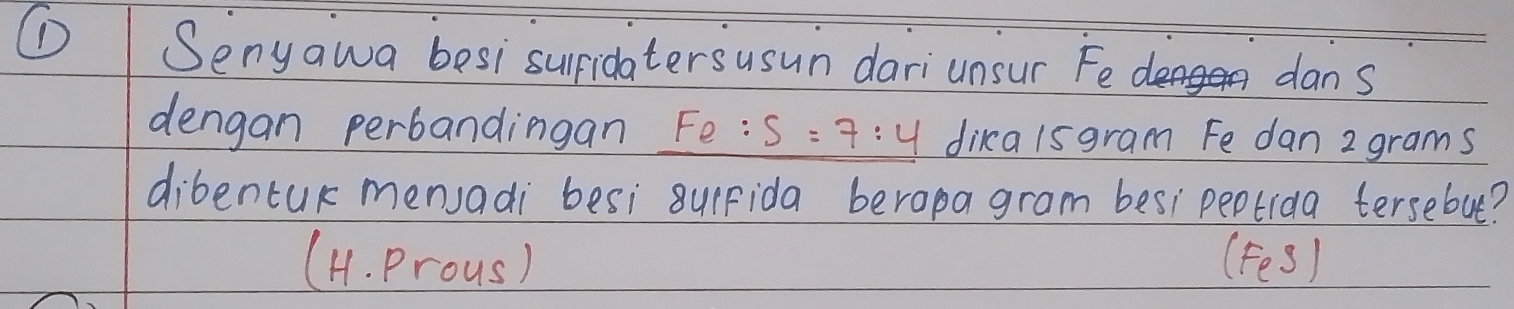 ① Senyawa besi sulfida tersusun dari unsur Fe dengan dan S
dengan perbandingan Fe : S = 7 : 4 dika 15 gram Fe dan 2 gram S
dibentuk menjadi besi sulfida berapa gram besi peptida tersebut?
(H. Prous) (FeS)